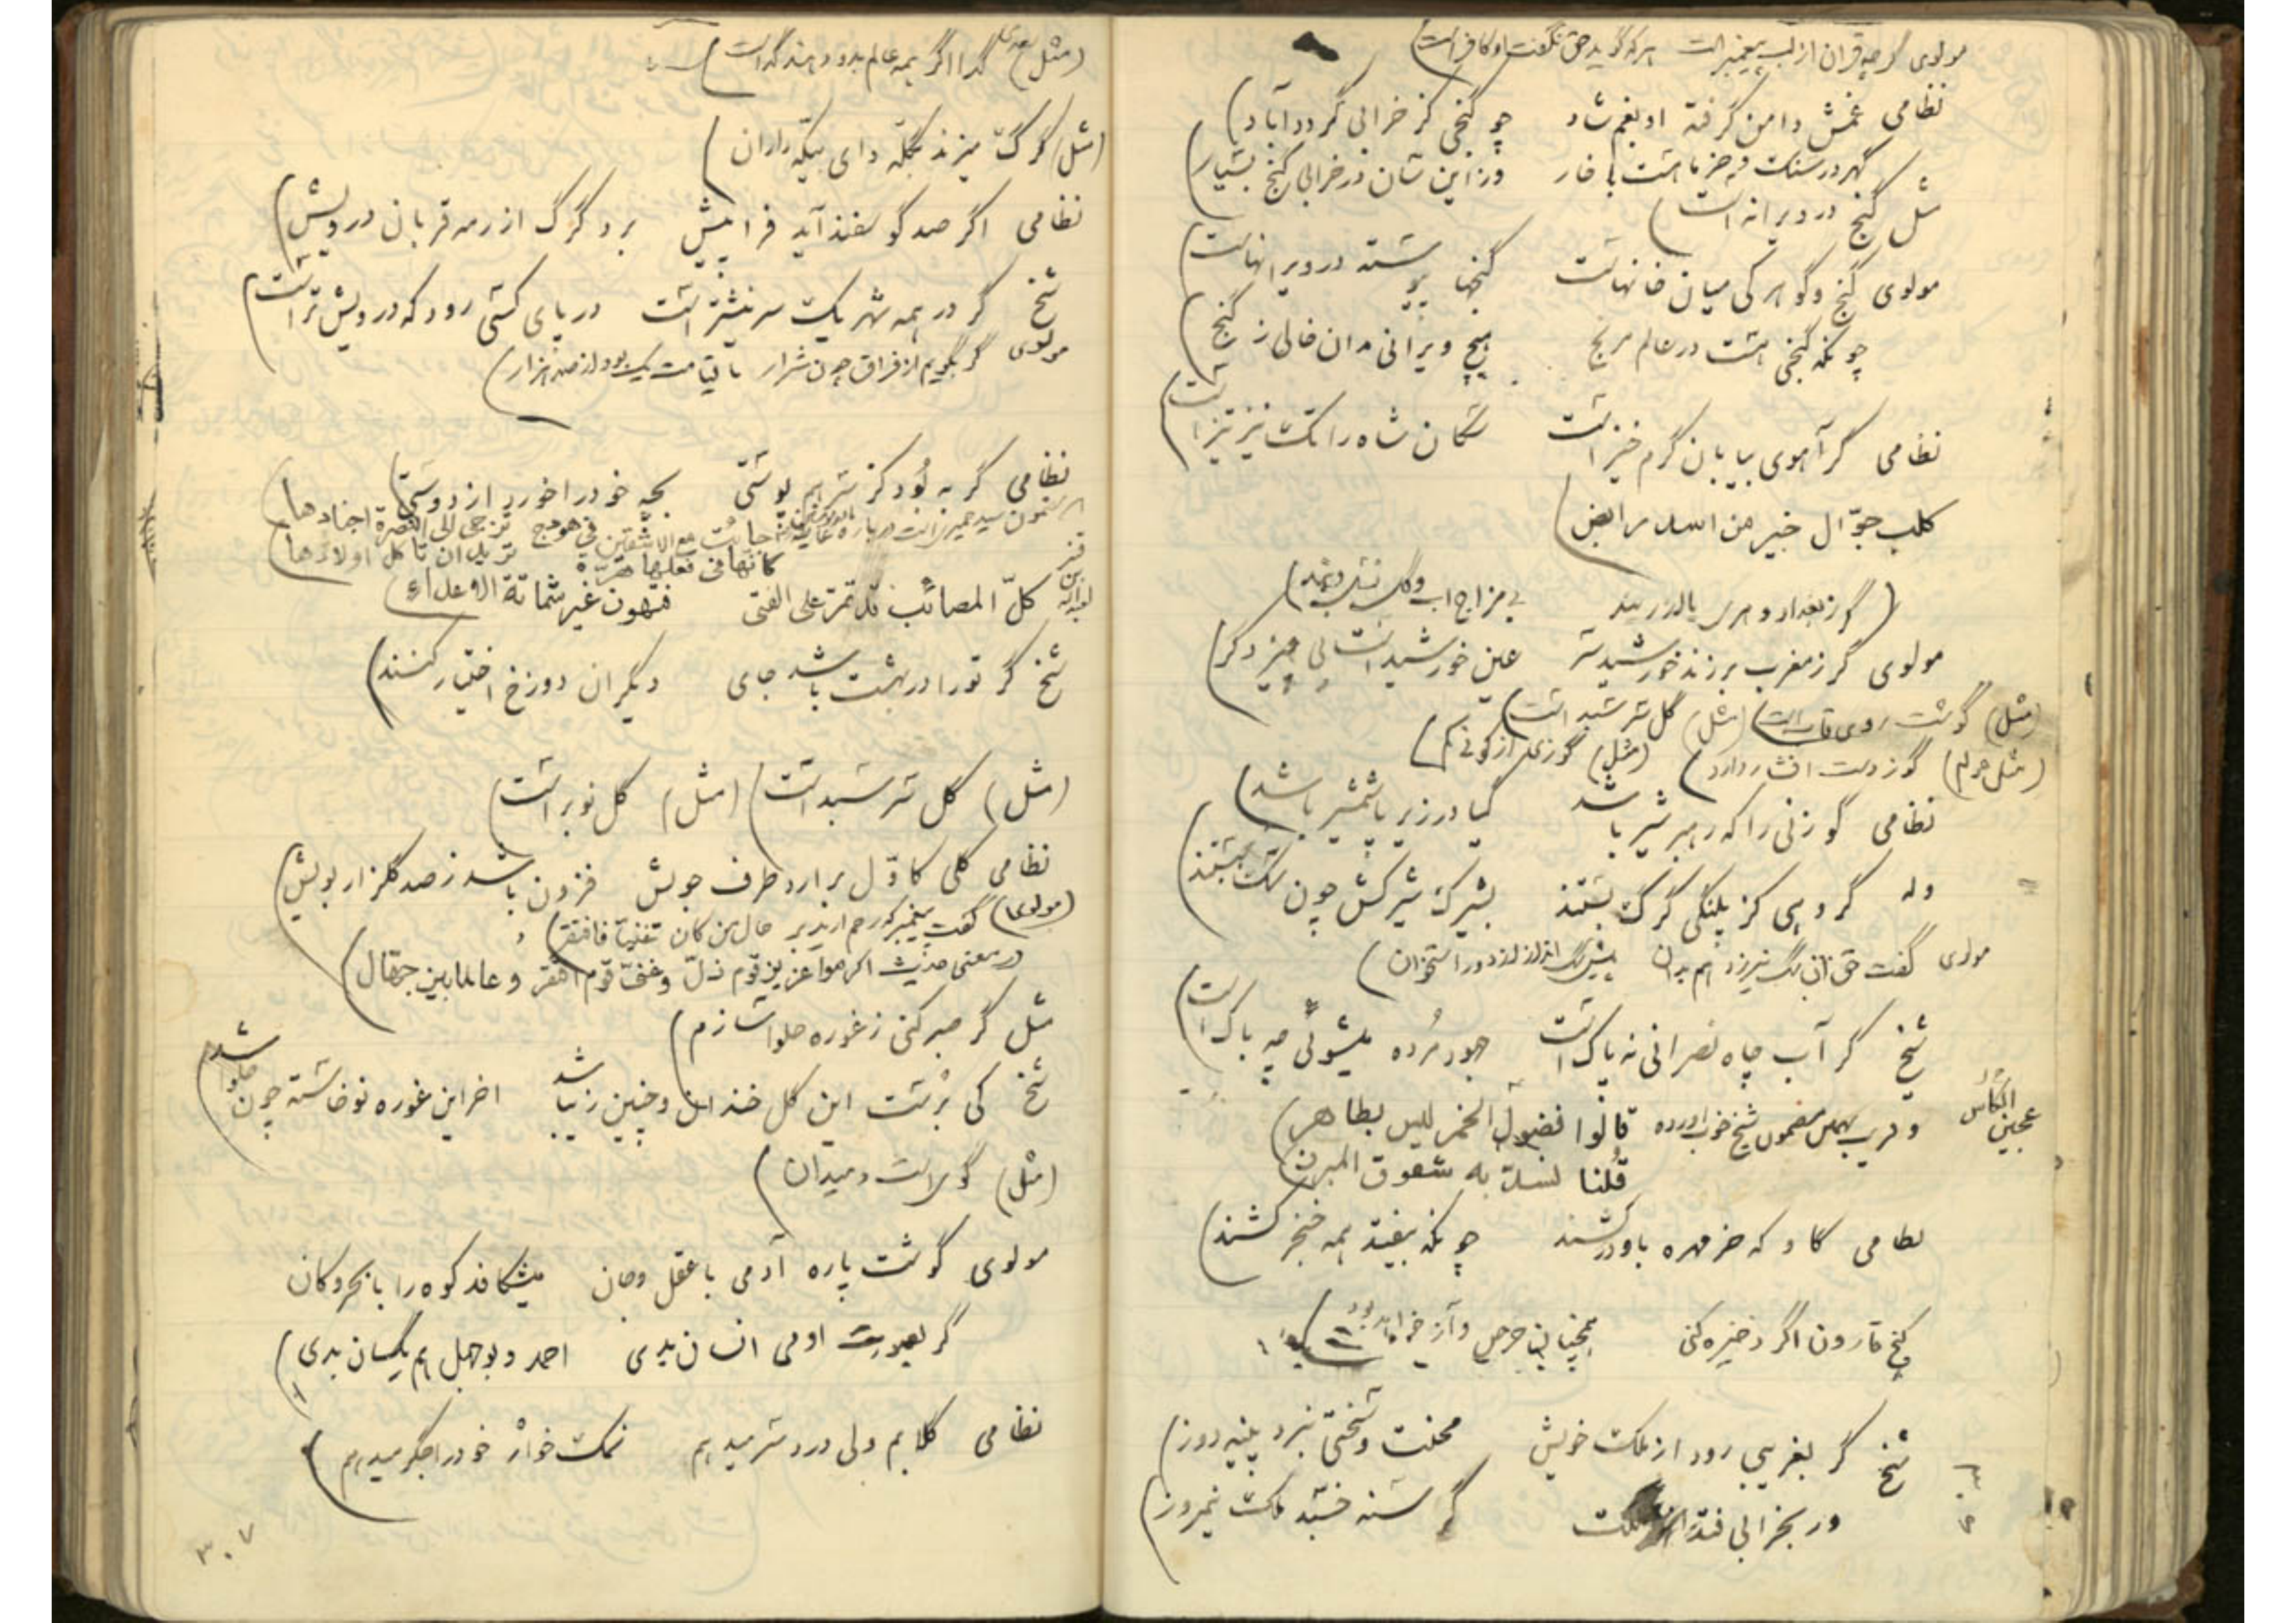 مولوی گرچه قران از لب پیغمبر است هر که گوید حق نگفت او کافر است
نظامی غمش دامن گرفته او بغم شاد چو گنجی کز خرابی گردد آباد
گهر در سنگ و خرما هست با خار وز این سان در خرابی گنج بسیار
مثل گنج در ویرانه است
مولوی گنج و گوهر کی میان خانهاست گنجها پیوسته در ویرانهاست
چونکه گنجی هست در عالم مرنج هیچ ویرانی مدان خالی ز گنج
نظامی گر آهوی بیابان گرم خیز است سگان شاه را تک نیز تیز است
کلب جوّال خیر من اسد رابض
گر ز بغداد و هری یا از ری‌اند بی مزاج اب و گل نسل ویند
مولوی گر ز مغرب بر زند خورشید سر عین خورشید است نی چیز دگر
(مثل) گوشت روی (مثل) گل سر سبد است
(مثل) گوز دست افشار دارد (مثل) گوزی از
نظامی گوزنی را که رهبر شیر باشد گیا در زیر پا شمشیر باشد
وله گروهی کز پلنگی گرگ بستند بشیرک شیرکش چون سگ
مولوی گفت حق
شیخ گر آب چاه نصرانی نه پاک است جهود مرده میشوئی چه باک است
و قریب بهمین مضمون شیخ خوب اورده قالوا فضول الخمر لیس بطاهر
عجین الکلس
قلنا نسدّ به شقوق المبرز
نظامی گاو که خرمهره باو در کشند چونکه بیفتد همه خنجر کشند
گنج قارون اگر ذخیره کنی همچنان حرص و آز
شیخ گر بغریبی رود از ملک خویش محنت و سختی نبرد پنبه دوز
ور بخرابی فتد از مملکت گرسنه خسبد ملک نیمروز
(مثل سعدی) گدا اگر همه عالم بدو دهند گداست
(مثل) گرگ میزند بگله وای بیکه داران
نظامی اگر صد گوسفند آید فرا پیش برد گرگ از رمه قربان درویش
شیخ گر در همه شهر یک سر نیشتر است در پای کسی رود که درویش تر است
مولوی گر بگویم از فراق چون شرار تا قیامت یک بود از صد هزار
نظامی گربه بود کز سر هم پوستی بچه خود را خورد از دوستی
جائت مع الاشقین فی هودج تزجی الی البصرة اجنادها
کانّها فی فعلها هرّة ترید ان تاکل اولادها
کلّ المصائب قد تمرّ علی الفتی فتهون غیر شماتة الاعداء
شیخ گر تو را در بهشت باشد جای دیگران دوزخ اختیار کنند
(مثل) گل سر سبد است (مثل) گل نوبر است
نظامی گلی کاوّل برارد طرف جویش فزون باشد ز صد گلزار بویش
(مولوی) گفت پیغمبر که رحم ارید بر حال من کان غنیّا فافتقر
در معنی حدیث اکرموا عزیز قوم ذلّ و غنیّ قوم افتقر و عالما بین جهّال
مثل گر صبر کنی ز غوره حلوا سازم
شیخ کی برست این گل خندان و چنین زیبا شد اخر این غوره نوخاسته چون حلوا شد
(مثل) گو است و میدان
مولوی گوشت پاره آدمی با عقل و جان میشکافد کوه را با بحر و کان
گر بصورت ادمی انسان بدی احمد و بوجهل هم یکسان بدی
نظامی گلابم ولی درد سر میدهم نمک خوار خود را جگر میدهم
۳۰۷